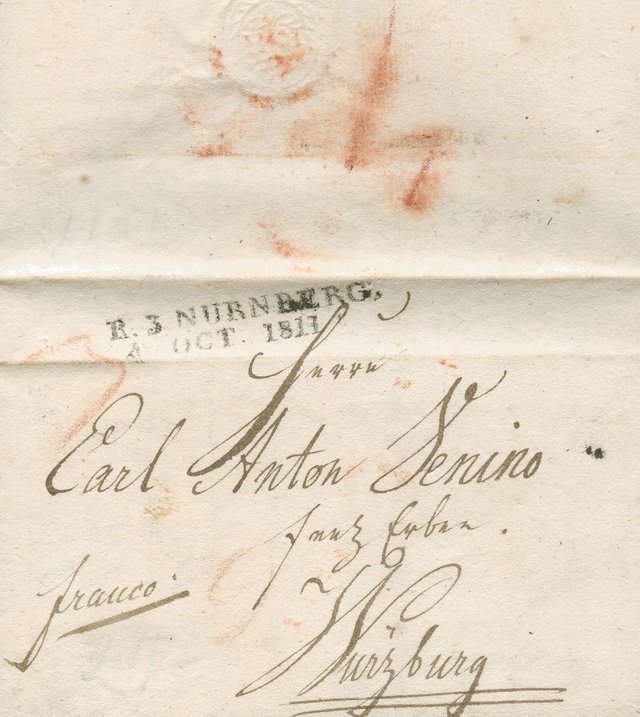 R. 3. NURNBERG.
4 OCT. 1811
Herrn
Carl Anton Venino
Erben.
franco.
Würzburg